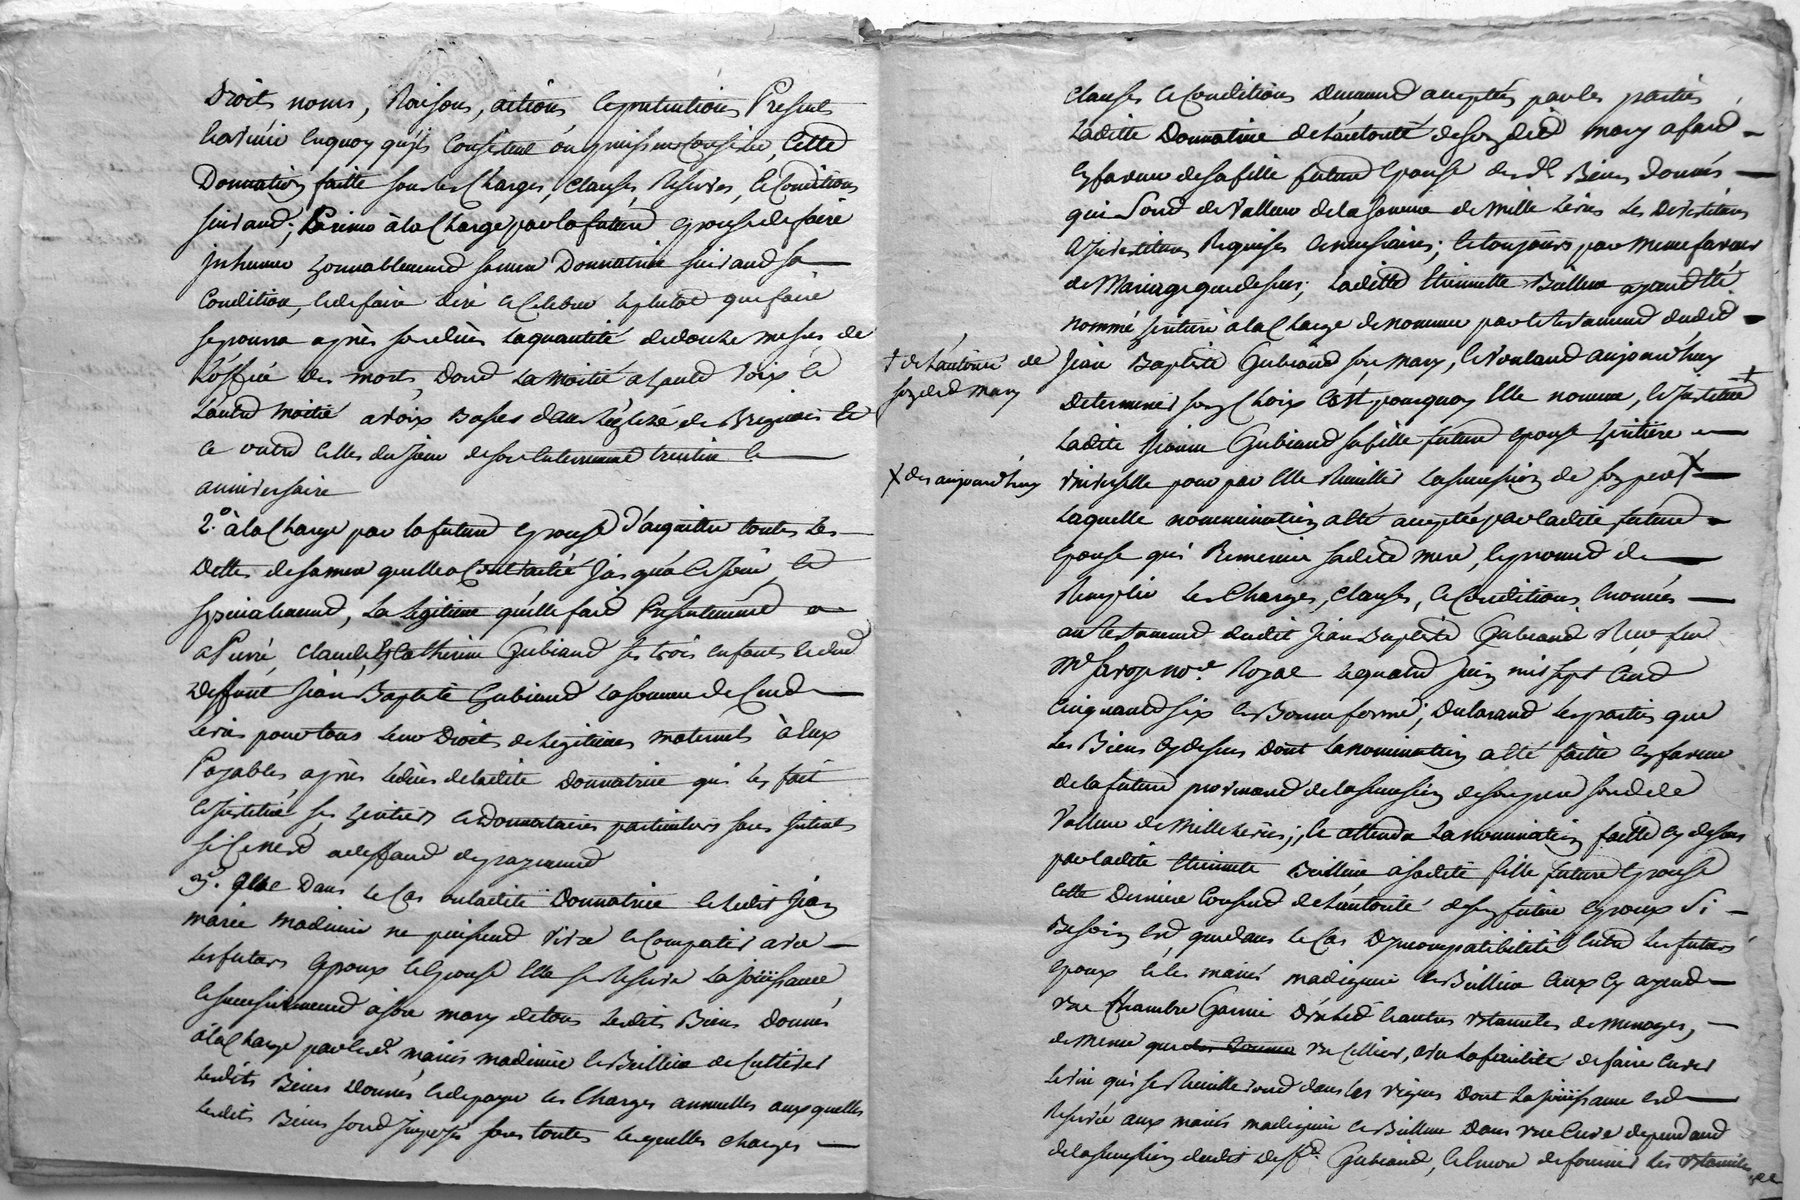 Droits noms, Raisons, actions, et pretentions Present
et avenir en quoy qu'ils Consistent ou puissent Consister, Cette
Donnation faitte sous les Charges, Clauses, Reserves, et Conditions
suivant; Primo à la Charge par la future epouse de faire
inhumer honnablement sa mere Donnatrice suivant sa
Condition, et de faire dire et Celebrer le plutot que faire
se pourra après son decès la quantité de douze messes de
L'office des morts, dont La Moitié a haute Voix et
L'autre Moitié a voix Basses dans L'eglize de Brignais Et
ce outre Celles du Jour de son Enterrement trentin et
anniversaire
2.° à la Charge par la future epouse d'acquitter toutes Les
Dettes de sa mere quelle a Contracté Jusqu'à Ce Jour, et
specialement, La Legitime qu'elle fait Presentement
a Pierre, Claude, et Catherine Gubiand ses trois enfants et dud
Deffunt Jean Baptiste Gubiand La somme de Cent
Livres pour tous Leur Droits de Legitimes maternels à Eux
Payables après Le decès de Ladite Donnatrice qui les fait
et institué ses heritiers et Donnataires particuliers sans Interets
si Ce n'est a deffaut de payement
3°. Que Dans Le Cas ou Ladite Donnatrice et Ledit Jean
marie madinier ne puissent Vivre et Compatir avec
Les futurs Epoux et Epouse Elle se Reserve La Joüissance
et successivement à son mary de tous Lesdits Biens Donnés
à la Charge par lesd. mariés madinier et Bullion de Cultiver
Lesdits Biens Donnés et de payer les Charges annuelles auxquelles
Lesdits Biens sont Imposés sous toutes Lesquelles charges
Clauses et Conditions Dument acceptés par les parties
Ladite Donnatrice de L'autorité de son dit mary a fait
en faveur de sa fille future Epouse desd. Biens donnés
qui Sont de Valleur de la somme de Mille Livres Les Devestitures
et investitures Requises et necessaires; et toujours par Meme faveur
de Mariage que dessus; Ladite Etiennette Bullion ayant Eté
nommé heritiere à la Charge de nommer par le testament dudit
Jean Baptiste Gubiand son mary, et Voulant aujourd'huy
† de L'autorité de
son dit mary
Determiner son Choix C'est pourquoy Elle nomme, et Institué †
Ladite Jeanne Gubiand sa fille future epouse heritiere
Universelle pour par Elle Recuillir La succession de son pere X
X des aujourd'huy
Laquelle nommination a Eté acceptée par Ladite future
Epouse qui Remercie Ladite mere, et promet de
Remplir Les Charges, Clauses, et Conditions enoncées
au testament dudit Jean Baptiste Gubiand Receu feu
Royal Le quatre Juin mil Sept Cent
Cinquante six en Bonne forme; Declarant Les parties que
Les Biens cy dessus dont La nomination a eté faitte en faveur
de la future provenant de la succession de son pere sont de
Valleur de Mille Livres; et attendu La nomination faitte cy dessus
par Ladite Etiennette Bullion à Ladite fille future Epouse
Cette Derniere Consent de L'autorité de son futur epoux Si
Besoin Est que dans Le Cas D'incompatibilité Entre Les futurs
epoux et les mariés madinier et Bullion Ceux cy ayent
une Chambre Garnie D'un Lit et autres Utancilles de Menages,
de Meme que un Cellier, avec la facilité de faire Cuver
Le vin qui se Recuilleront dans les vignes Dont La Joüissance est
Reservée aux mariés madinier et Bullion Dans une Cuve dependant
de la succession dudit deff.t Gubiand, et encore de fournir Les Utancilles